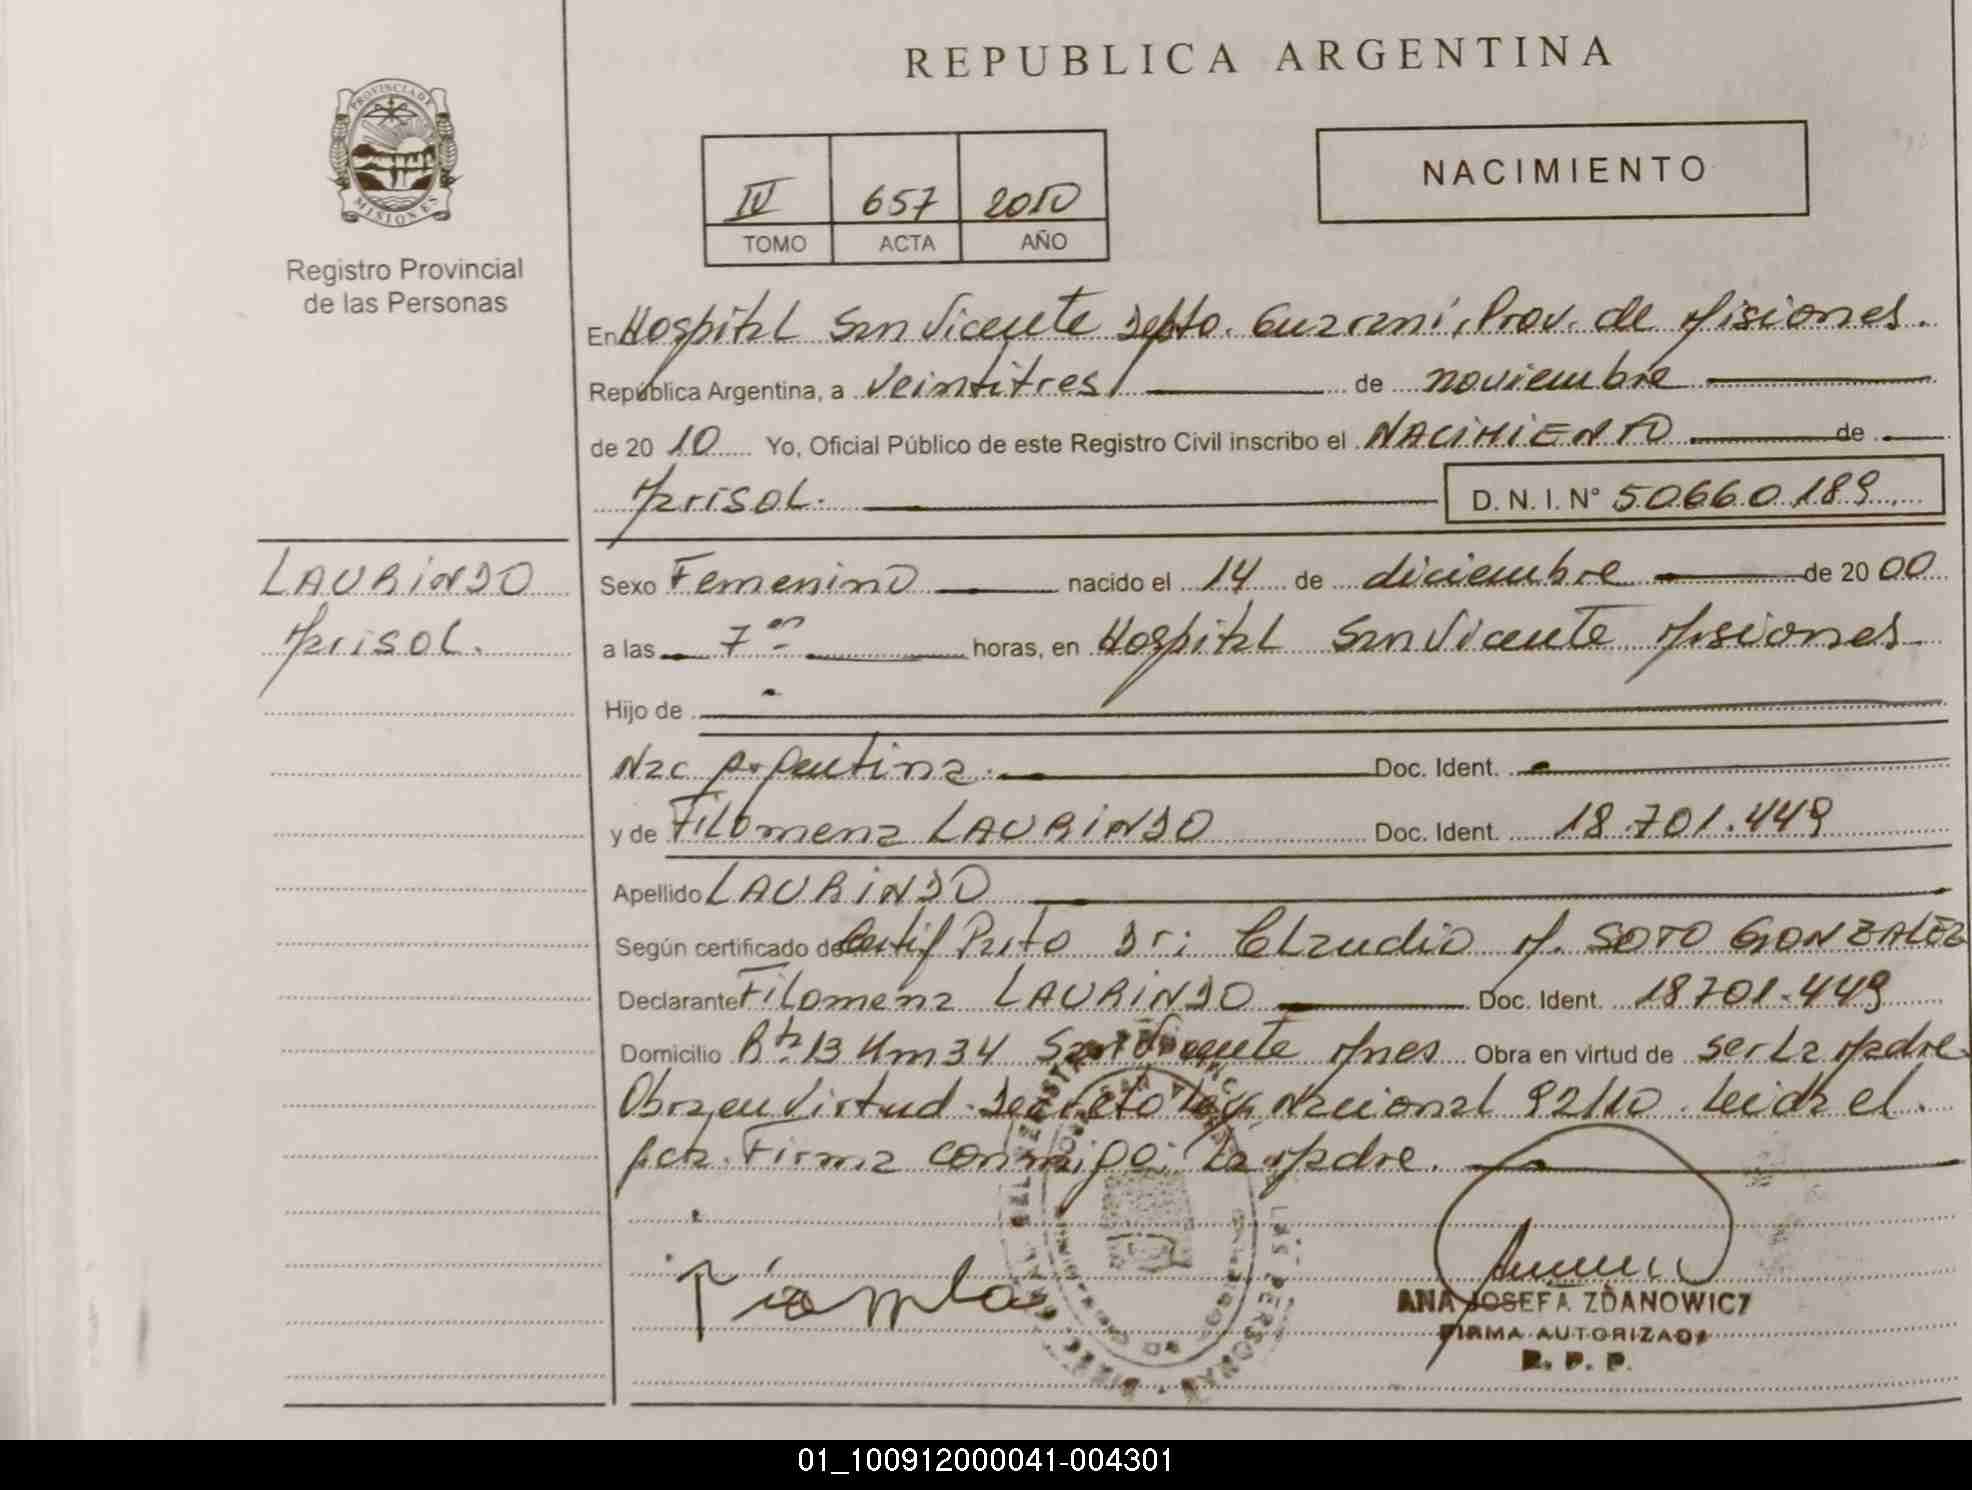 REPUBLICA ARGENTINA
PROVINCIA DE MISIONES
Registro Provincial
de las Personas
IV 657 2010
TOMO ACTA AÑO
NACIMIENTO
En Hospital San Vicente Depto. Guarani, Prov. de Misiones.
República Argentina, a veintitres de noviembre
de 2010 Yo, Oficial Público de este Registro Civil inscribo el NACIMIENTO de
Marisol.
D. N. I. N° 50660189
LAURINDO
Marisol.
Sexo Femenino nacido el 14 de diciembre de 2000
a las 7 horas, en Hospital San Vicente Misiones
Hijo de
Nac Argentina. Doc. Ident.
y de Filomena LAURINDO Doc. Ident. 18.701.449
Apellido LAURINDO
Según certificado de Certif Parto Dr: Claudio M. SOTO GONZALEZ
Declarante Filomena LAURINDO Doc. Ident. 18701.449
Domicilio Rta 13 Km 34 San Vicente Mnes Obra en virtud de ser La Madre
Obra en virtud Decreto Nacional 92/10. Leida el
Acta Firma conmigo La Madre.
ANA JOSEFA ZDANOWICZ
FIRMA AUTORIZADA
R. P. P.
01_100912000041-004301